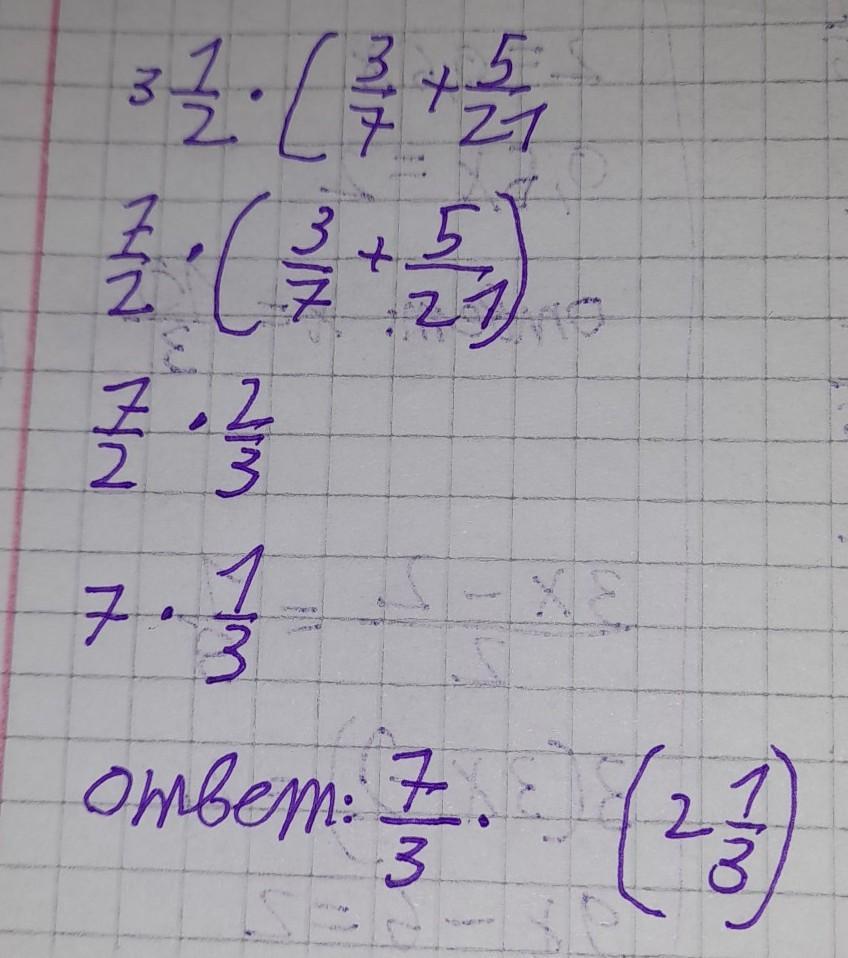 3 1/2 · ( 3/7 + 5/21
7/2 · ( 3/7 + 5/21 )
7/2 · 2/3
7 · 1/3
ответ: 7/3 · ( 2 1/3 )